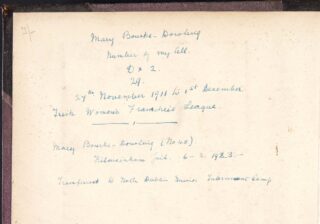 2/-
Mary Bourke-Dowling
Number of my Cell.
D x 2.
29.
24th November 1911 to 1st December
Irish Women's Franchise League.
Mary Bourke-Dowling (No 40)
Kilmainham Jail. 6-2-1923.-
Transferred to North Dublin Union Internment Camp